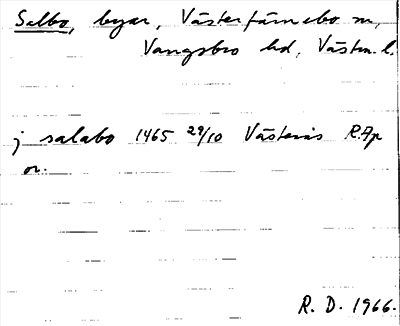 Salbo, byar, Västerfärnebo sn,
Vangsbro hd, Västm. l.
j salabo 1465 29/10 Västerås R.Ap
or.
R. D. 1966.